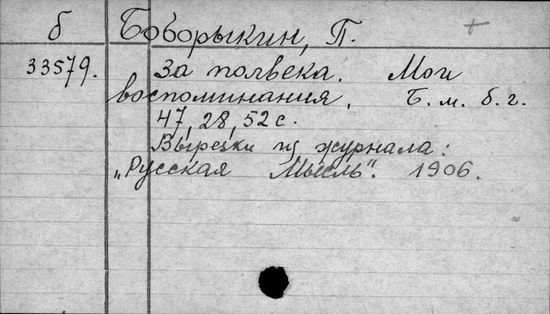 б Боборыкин, П.
33579. За полвека. Мои
воспоминания. Б. м. б. г.
47, 28, 52 с.
Вырезки из журнала:
„Русская Мысль". 1906.